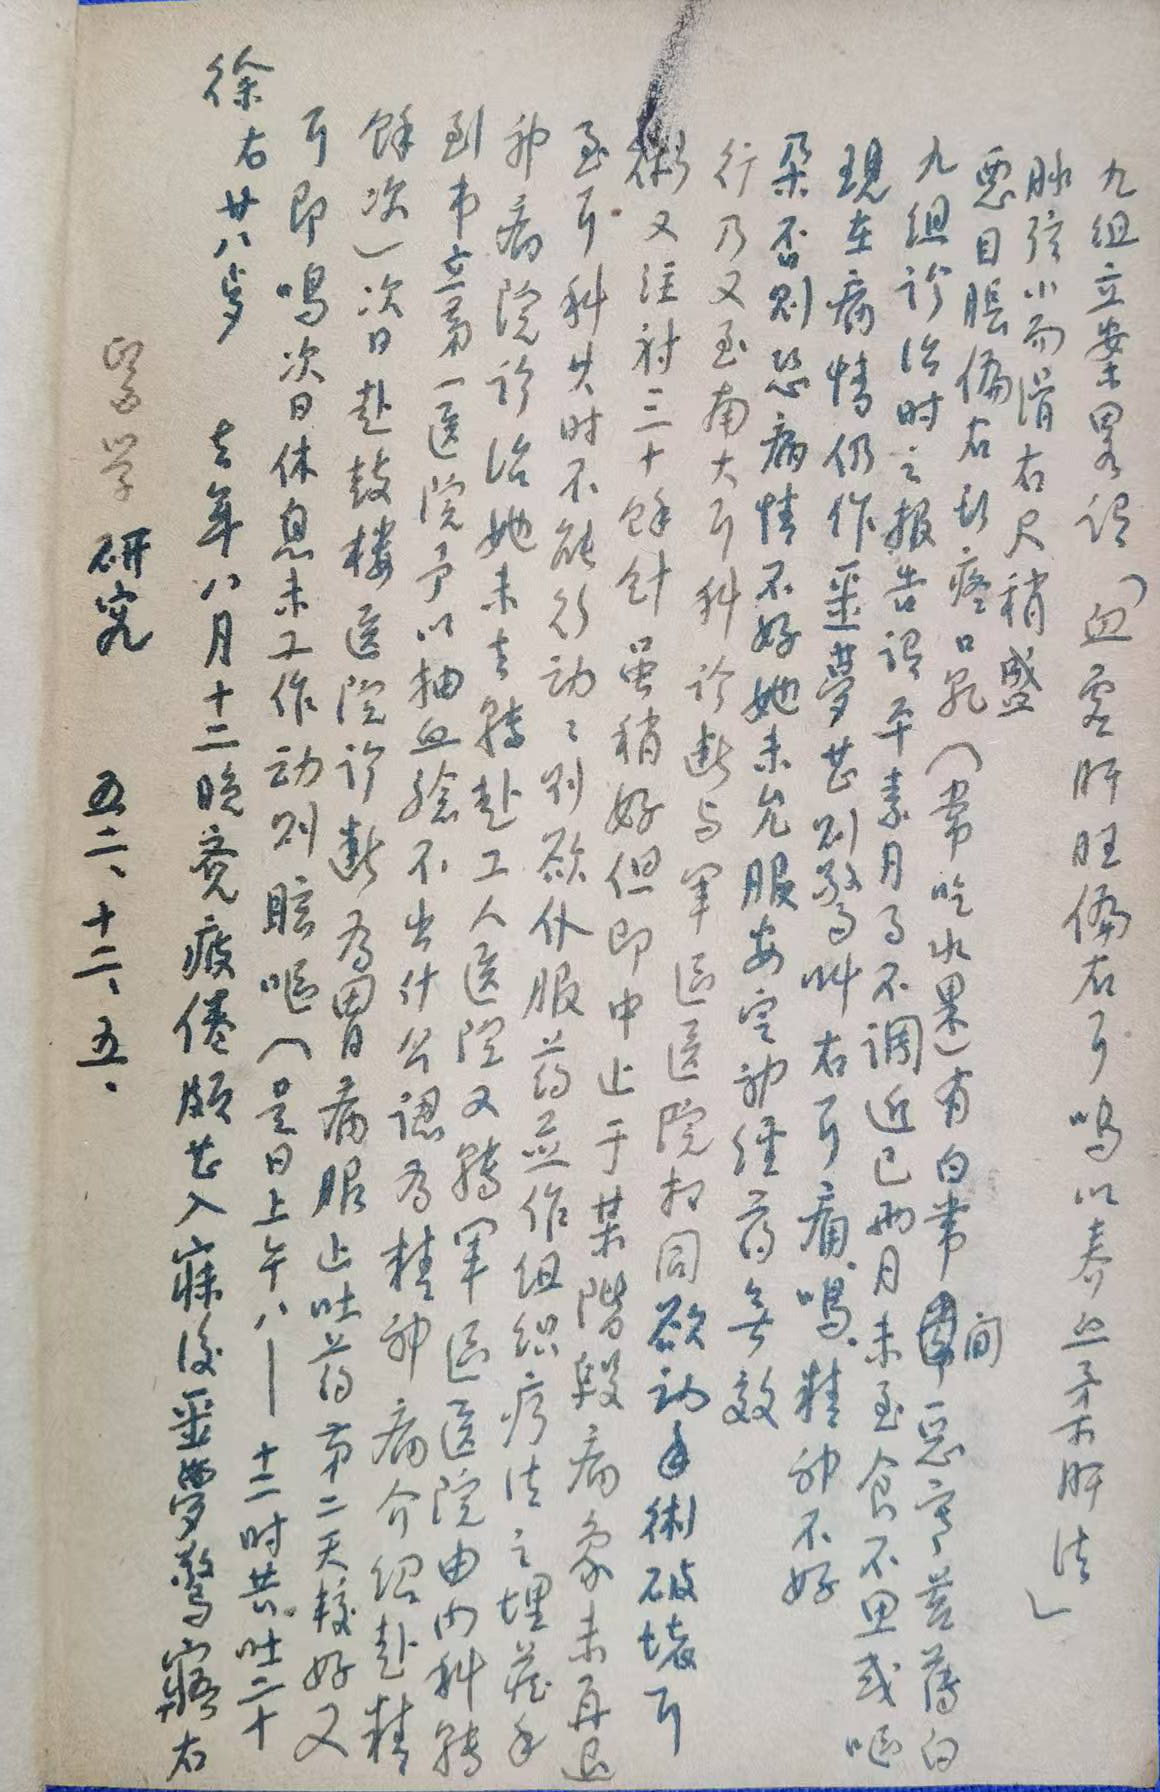 医学研究 五二、十二、五、
徐右廿八岁 去年八月十二晚竟疲倦頗甚入寐後噩夢驚寤右
耳即鳴次日休息未工作动则眩呕(是日上午八——十二时共吐二十
餘次)次日赴鼓樓医院诊断为胃病服止吐药第二天較好又
到市立第一医院予以抽血驗不出什么認为精神病介绍赴精
神病院诊治她未去轉赴工人医院又轉军区医院由内科轉
至耳科其时不能行动〻则欲仆服药並作组织疗法之埋藏手
術又注射三十餘针虽稍好但即中止于某階段病象未再退
行乃又至南大耳科诊断与军区医院相同欲动手術破壞耳
朵否则恐病情不好她未允服安定神经药無效
現在病情仍作噩夢甚则驚叫右耳痛、鳴、精神不好
九组诊治时之报告谓平素月事不調近已两月未至食不思或呕
惡目脹偏右头疼口乳(常吃水果)有白帶間惡寒苔薄白
脉弦小而滑右尺稍盛
九组立案畧谓(血虚肝旺偏右耳鳴以养血柔肝法)